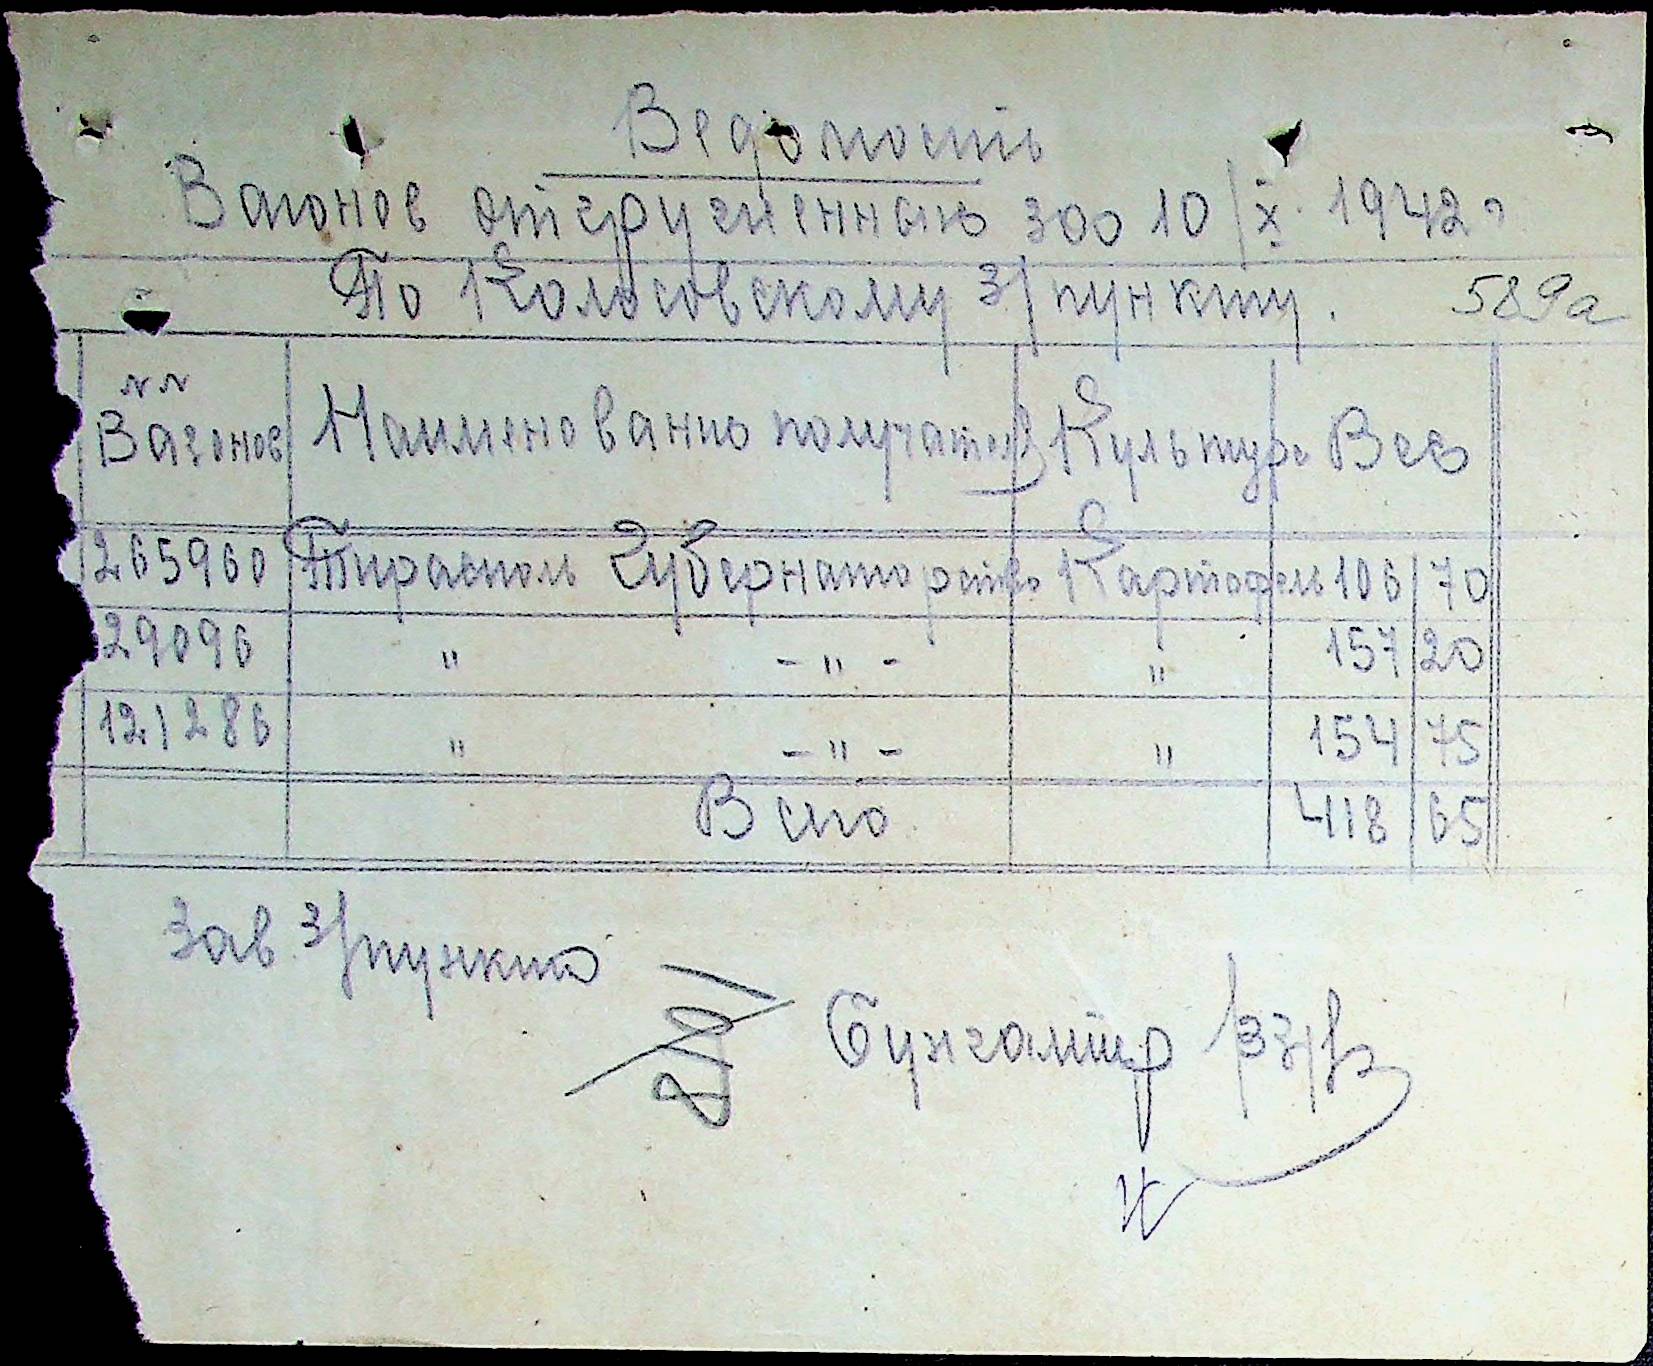 Ведомость
Вагонов отгруженных за 10/X. 1942 г
По Колосовскому з/пункту. 589а
NN Вагонов | Наименование получателя | Культура | Вес
265960 | Тирасполь Губернаторство | Картофель | 106 | 70
29096 | " -"- | " | 157 | 20
121286 | " -"- | " | 154 | 75
Всего | 418 | 65
Зав. з/пункта
Бухгалтер